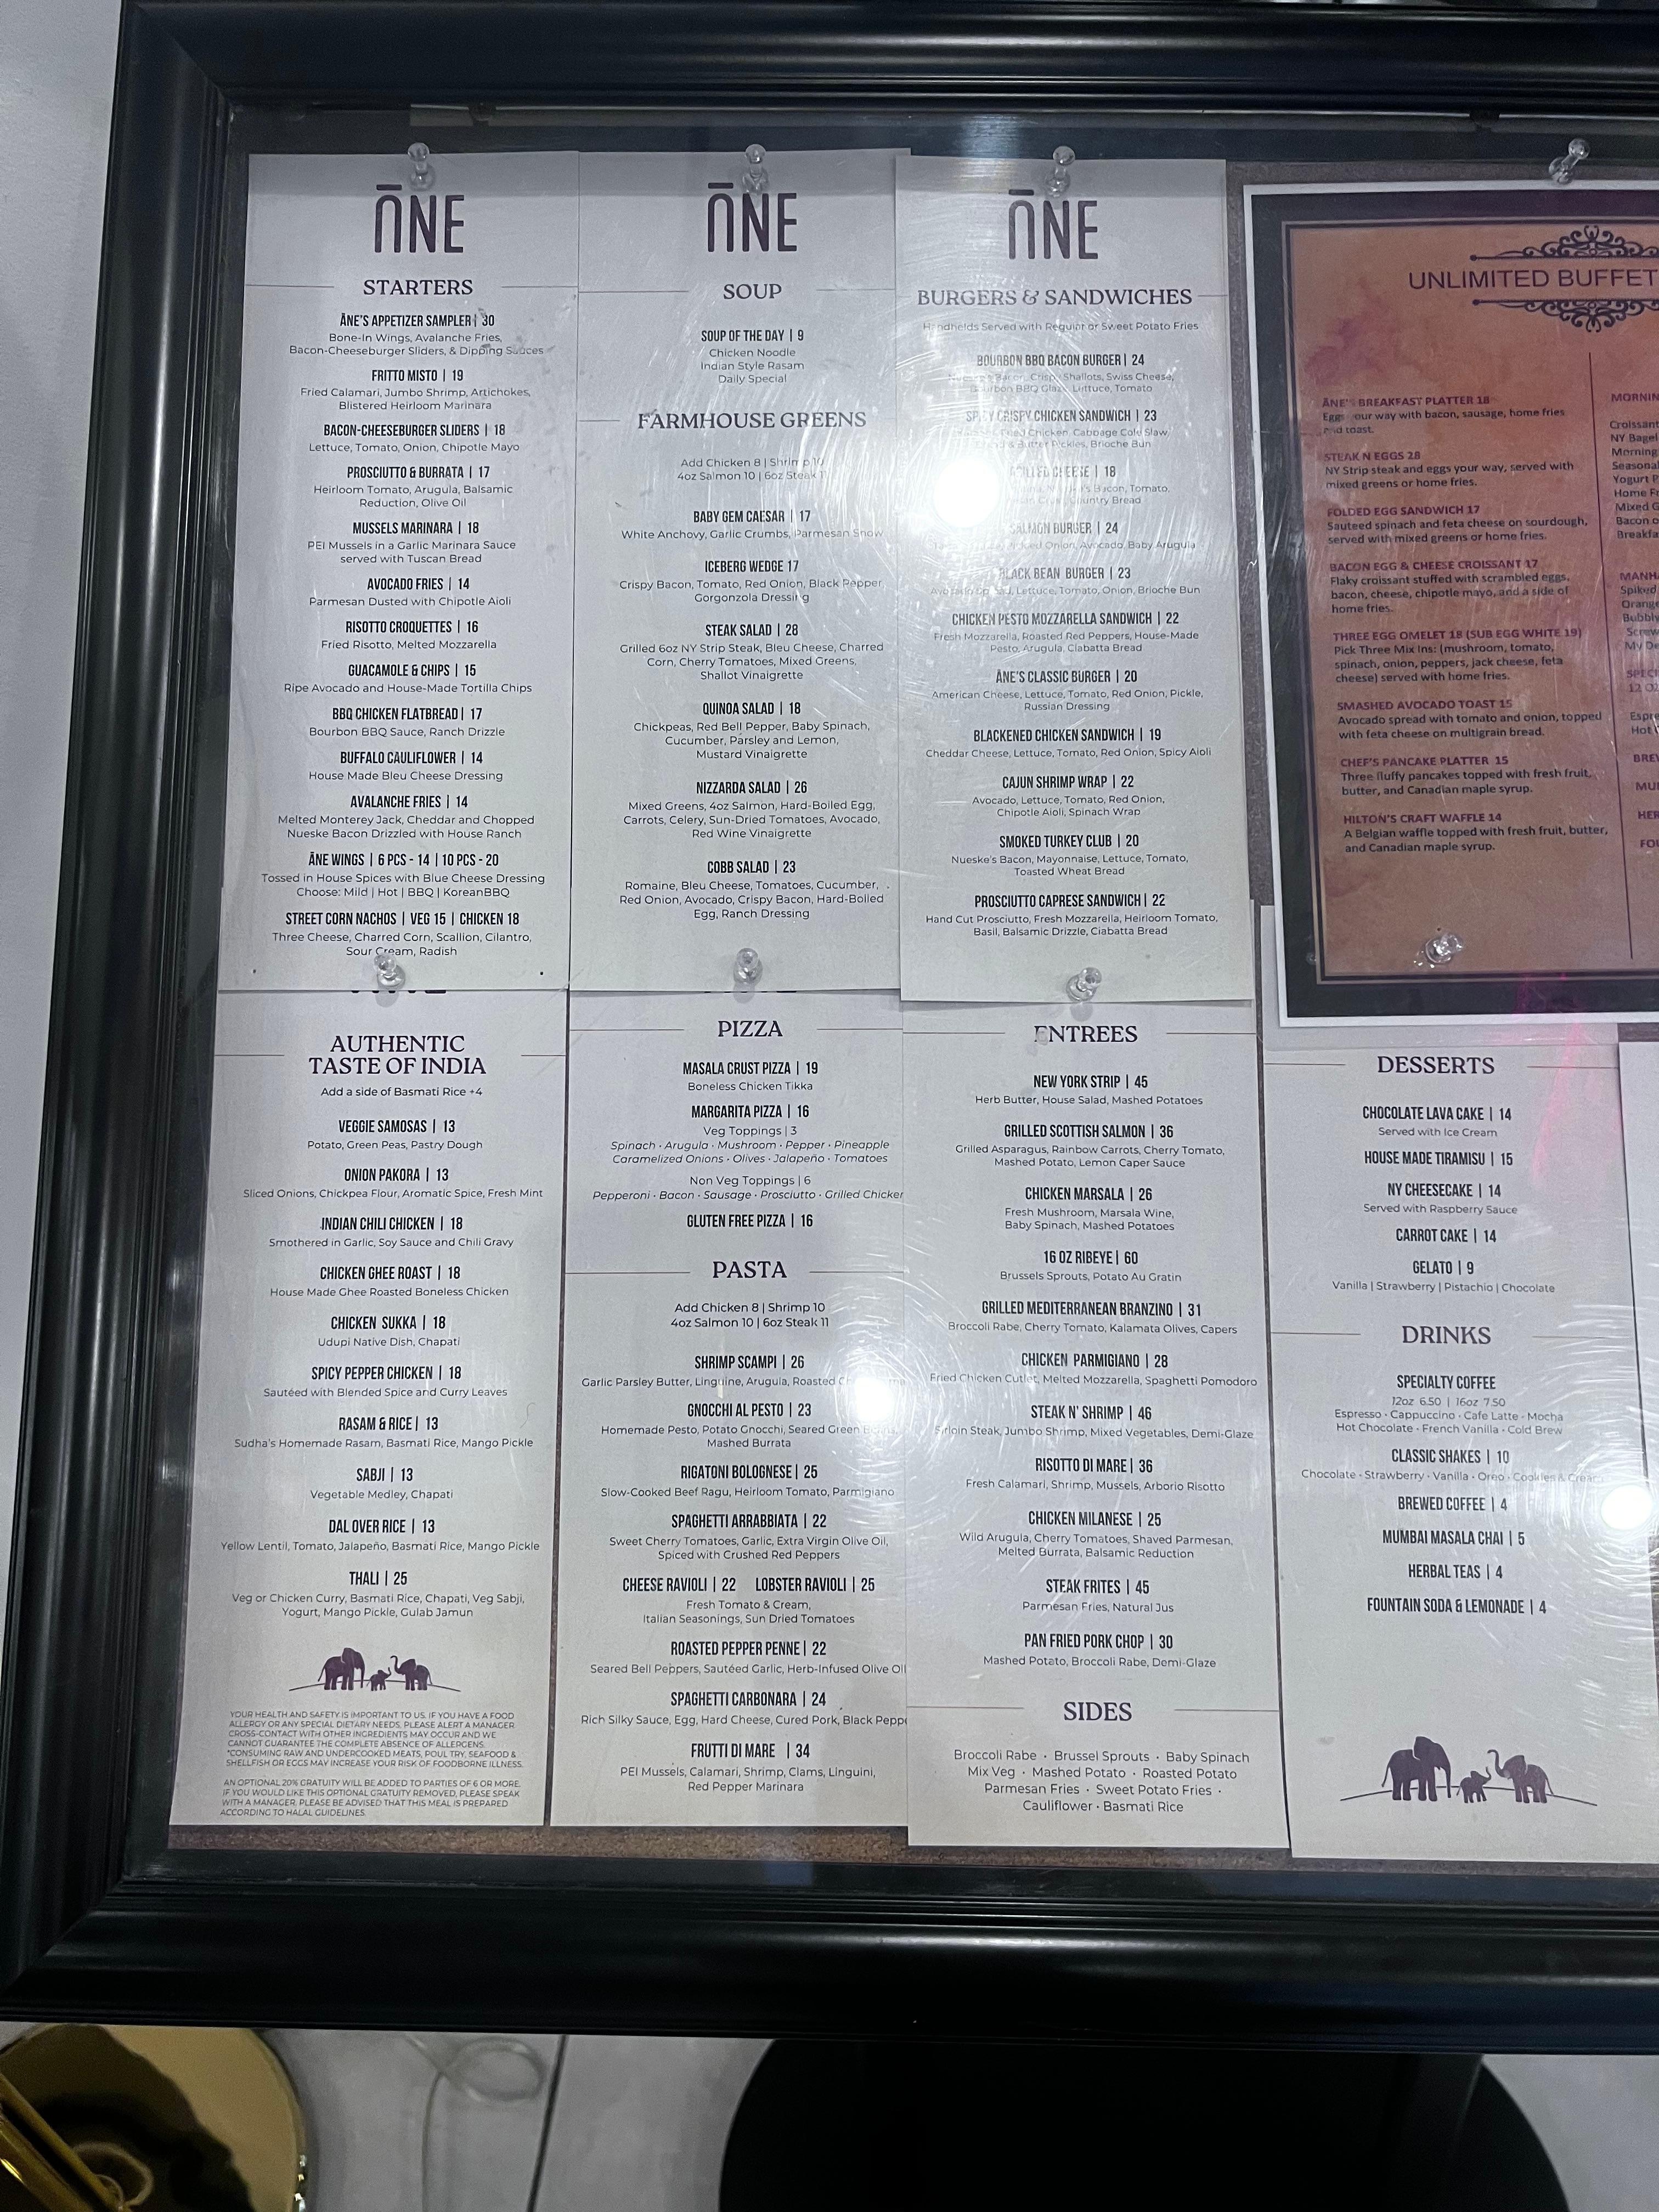 ĀNE
STARTERS
ĀNE'S APPETIZER SAMPLER | 30
Bone-In Wings, Avalanche Fries,
Bacon-Cheeseburger Sliders, & Dipping Sauces
FRITTO MISTO | 19
Fried Calamari, Jumbo Shrimp, Artichokes,
Blistered Heirloom Marinara
BACON-CHEESEBURGER SLIDERS | 18
Lettuce, Tomato, Onion, Chipotle Mayo
PROSCIUTTO & BURRATA | 17
Heirloom Tomato, Arugula, Balsamic
Reduction, Olive Oil
MUSSELS MARINARA | 18
PEI Mussels in a Garlic Marinara Sauce
served with Tuscan Bread
AVOCADO FRIES | 14
Parmesan Dusted with Chipotle Aioli
RISOTTO CROQUETTES | 16
Fried Risotto, Melted Mozzarella
GUACAMOLE & CHIPS | 15
Ripe Avocado and House-Made Tortilla Chips
BBQ CHICKEN FLATBREAD | 17
Bourbon BBQ Sauce, Ranch Drizzle
BUFFALO CAULIFLOWER | 14
House Made Bleu Cheese Dressing
AVALANCHE FRIES | 14
Melted Monterey Jack, Cheddar and Chopped
Nueske Bacon Drizzled with House Ranch
ĀNE WINGS | 6 PCS - 14 | 10 PCS - 20
Tossed in House Spices with Blue Cheese Dressing
Choose: Mild | Hot | BBQ | KoreanBBQ
STREET CORN NACHOS | VEG 15 | CHICKEN 18
Three Cheese, Charred Corn, Scallion, Cilantro,
Sour Cream, Radish
ĀNE
SOUP
SOUP OF THE DAY | 9
Chicken Noodle
Indian Style Rasam
Daily Special
FARMHOUSE GREENS
Add Chicken 8 | Shrimp 10
4oz Salmon 10 | 6oz Steak 11
BABY GEM CAESAR | 17
White Anchovy, Garlic Crumbs, Parmesan Snow
ICEBERG WEDGE 17
Crispy Bacon, Tomato, Red Onion, Black Pepper
Gorgonzola Dressing
STEAK SALAD | 28
Grilled 6oz NY Strip Steak, Bleu Cheese, Charred
Corn, Cherry Tomatoes, Mixed Greens,
Shallot Vinaigrette
QUINOA SALAD | 18
Chickpeas, Red Bell Pepper, Baby Spinach,
Cucumber, Parsley and Lemon,
Mustard Vinaigrette
NIZZARDA SALAD | 26
Mixed Greens, 4oz Salmon, Hard-Boiled Egg,
Carrots, Celery, Sun-Dried Tomatoes, Avocado,
Red Wine Vinaigrette
COBB SALAD | 23
Romaine, Bleu Cheese, Tomatoes, Cucumber,
Red Onion, Avocado, Crispy Bacon, Hard-Boiled
Egg, Ranch Dressing
ĀNE
BURGERS & SANDWICHES
Handhelds Served with Regular or Sweet Potato Fries
BOURBON BBQ BACON BURGER | 24
Bacon, Crispy Shallots, Swiss Cheese,
Bourbon BBQ Glaze, Lettuce, Tomato
SPICY CRISPY CHICKEN SANDWICH | 23
Fried Chicken, Cabbage Cole Slaw
& Butter Pickles, Brioche Bun
GRILLED CHEESE | 18
Bacon, Tomato,
Country Bread
SALMON BURGER | 24
Onion, Avocado, Baby Arugula
BLACK BEAN BURGER | 23
Avocado Spread, Lettuce, Tomato, Onion, Brioche Bun
CHICKEN PESTO MOZZARELLA SANDWICH | 22
Fresh Mozzarella, Roasted Red Peppers, House-Made
Pesto, Arugula, Ciabatta Bread
ĀNE'S CLASSIC BURGER | 20
American Cheese, Lettuce, Tomato, Red Onion, Pickle,
Russian Dressing
BLACKENED CHICKEN SANDWICH | 19
Cheddar Cheese, Lettuce, Tomato, Red Onion, Spicy Aioli
CAJUN SHRIMP WRAP | 22
Avocado, Lettuce, Tomato, Red Onion,
Chipotle Aioli, Spinach Wrap
SMOKED TURKEY CLUB | 20
Nueske's Bacon, Mayonnaise, Lettuce, Tomato,
Toasted Wheat Bread
PROSCIUTTO CAPRESE SANDWICH | 22
Hand Cut Prosciutto, Fresh Mozzarella, Heirloom Tomato,
Basil, Balsamic Drizzle, Ciabatta Bread
UNLIMITED BUFFET
ĀNE'S BREAKFAST PLATTER 18
Eggs your way with bacon, sausage, home fries
and toast.
STEAK N EGGS 28
NY Strip steak and eggs your way, served with
mixed greens or home fries.
FOLDED EGG SANDWICH 17
Sauteed spinach and feta cheese on sourdough,
served with mixed greens or home fries.
BACON EGG & CHEESE CROISSANT 17
Flaky croissant stuffed with scrambled eggs,
bacon, cheese, chipotle mayo, and a side of
home fries.
THREE EGG OMELET 18 (SUB EGG WHITE 19)
Pick Three Mix Ins: (mushroom, tomato,
spinach, onion, peppers, jack cheese, feta
cheese) served with home fries.
SMASHED AVOCADO TOAST 15
Avocado spread with tomato and onion, topped
with feta cheese on multigrain bread.
CHEF'S PANCAKE PLATTER 15
Three fluffy pancakes topped with fresh fruit,
butter, and Canadian maple syrup.
HILTON'S CRAFT WAFFLE 14
A Belgian waffle topped with fresh fruit, butter,
and Canadian maple syrup.
Croissant
NY Bagel
Morning
Seasonal
Yogurt
Home
Mixed
Bacon
Spiked
Orange
Bubbly
My
12
Hot
AUTHENTIC
TASTE OF INDIA
Add a side of Basmati Rice +4
VEGGIE SAMOSAS | 13
Potato, Green Peas, Pastry Dough
ONION PAKORA | 13
Sliced Onions, Chickpea Flour, Aromatic Spice, Fresh Mint
INDIAN CHILI CHICKEN | 18
Smothered in Garlic, Soy Sauce and Chili Gravy
CHICKEN GHEE ROAST | 18
House Made Ghee Roasted Boneless Chicken
CHICKEN SUKKA | 18
Udupi Native Dish, Chapati
SPICY PEPPER CHICKEN | 18
Sautéed with Blended Spice and Curry Leaves
RASAM & RICE | 13
Sudha's Homemade Rasam, Basmati Rice, Mango Pickle
SABJI | 13
Vegetable Medley, Chapati
DAL OVER RICE | 13
Yellow Lentil, Tomato, Jalapeño, Basmati Rice, Mango Pickle
THALI | 25
Veg or Chicken Curry, Basmati Rice, Chapati, Veg Sabji,
Yogurt, Mango Pickle, Gulab Jamun
YOUR HEALTH AND SAFETY IS IMPORTANT TO US. IF YOU HAVE A FOOD
ALLERGY OR ANY SPECIAL DIETARY NEEDS, PLEASE ALERT A MANAGER
CROSS-CONTACT WITH OTHER INGREDIENTS MAY OCCUR AND WE
CANNOT GUARANTEE THE COMPLETE ABSENCE OF ALLERGENS.
*CONSUMING RAW AND UNDERCOOKED MEATS, POULTRY, SEAFOOD &
SHELLFISH OR EGGS MAY INCREASE YOUR RISK OF FOODBORNE ILLNESS.
AN OPTIONAL 20% GRATUITY WILL BE ADDED TO PARTIES OF 6 OR MORE.
IF YOU WOULD LIKE THIS OPTIONAL GRATUITY REMOVED, PLEASE SPEAK
WITH A MANAGER. PLEASE BE ADVISED THAT THIS MEAL IS PREPARED
ACCORDING TO HALAL GUIDELINES.
PIZZA
MASALA CRUST PIZZA | 19
Boneless Chicken Tikka
MARGARITA PIZZA | 16
Veg Toppings | 3
Spinach • Arugula • Mushroom • Pepper • Pineapple
Caramelized Onions • Olives • Jalapeño • Tomatoes
Non Veg Toppings | 6
Pepperoni • Bacon • Sausage • Prosciutto • Grilled Chicken
GLUTEN FREE PIZZA | 16
PASTA
Add Chicken 8 | Shrimp 10
4oz Salmon 10 | 6oz Steak 11
SHRIMP SCAMPI | 26
Garlic Parsley Butter, Linguine, Arugula, Roasted
GNOCCHI AL PESTO | 23
Homemade Pesto, Potato Gnocchi, Seared Green
Mashed Burrata
RIGATONI BOLOGNESE | 25
Slow-Cooked Beef Ragu, Heirloom Tomato, Parmigiano
SPAGHETTI ARRABBIATA | 22
Sweet Cherry Tomatoes, Garlic, Extra Virgin Olive Oil,
Spiced with Crushed Red Peppers
CHEESE RAVIOLI | 22 LOBSTER RAVIOLI | 25
Fresh Tomato & Cream,
Italian Seasonings, Sun Dried Tomatoes
ROASTED PEPPER PENNE | 22
Seared Bell Peppers, Sautéed Garlic, Herb-Infused Olive Oil
SPAGHETTI CARBONARA | 24
Rich Silky Sauce, Egg, Hard Cheese, Cured Pork, Black Peppe
FRUTTI DI MARE | 34
PEI Mussels, Calamari, Shrimp, Clams, Linguini,
Red Pepper Marinara
ENTREES
NEW YORK STRIP | 45
Herb Butter, House Salad, Mashed Potatoes
GRILLED SCOTTISH SALMON | 36
Grilled Asparagus, Rainbow Carrots, Cherry Tomato,
Mashed Potato, Lemon Caper Sauce
CHICKEN MARSALA | 26
Fresh Mushroom, Marsala Wine,
Baby Spinach, Mashed Potatoes
16 OZ RIBEYE | 60
Brussels Sprouts, Potato Au Gratin
GRILLED MEDITERRANEAN BRANZINO | 31
Broccoli Rabe, Cherry Tomato, Kalamata Olives, Capers
CHICKEN PARMIGIANO | 28
Fried Chicken Cutlet, Melted Mozzarella, Spaghetti Pomodoro
STEAK N' SHRIMP | 46
Sirloin Steak, Jumbo Shrimp, Mixed Vegetables, Demi-Glaze
RISOTTO DI MARE | 36
Fresh Calamari, Shrimp, Mussels, Arborio Risotto
CHICKEN MILANESE | 25
Wild Arugula, Cherry Tomatoes, Shaved Parmesan,
Melted Burrata, Balsamic Reduction
STEAK FRITES | 45
Parmesan Fries, Natural Jus
PAN FRIED PORK CHOP | 30
Mashed Potato, Broccoli Rabe, Demi-Glaze
SIDES
Broccoli Rabe • Brussel Sprouts • Baby Spinach
Mix Veg • Mashed Potato • Roasted Potato
Parmesan Fries • Sweet Potato Fries •
Cauliflower • Basmati Rice
DESSERTS
CHOCOLATE LAVA CAKE | 14
Served with Ice Cream
HOUSE MADE TIRAMISU | 15
NY CHEESECAKE | 14
Served with Raspberry Sauce
CARROT CAKE | 14
GELATO | 9
Vanilla | Strawberry | Pistachio | Chocolate
DRINKS
SPECIALTY COFFEE
12oz 6.50 | 16oz 7.50
Espresso • Cappuccino • Cafe Latte • Mocha
Hot Chocolate • French Vanilla • Cold Brew
CLASSIC SHAKES | 10
Chocolate • Strawberry • Vanilla • Oreo • Cookies & Cream
BREWED COFFEE | 4
MUMBAI MASALA CHAI | 5
HERBAL TEAS | 4
FOUNTAIN SODA & LEMONADE | 4